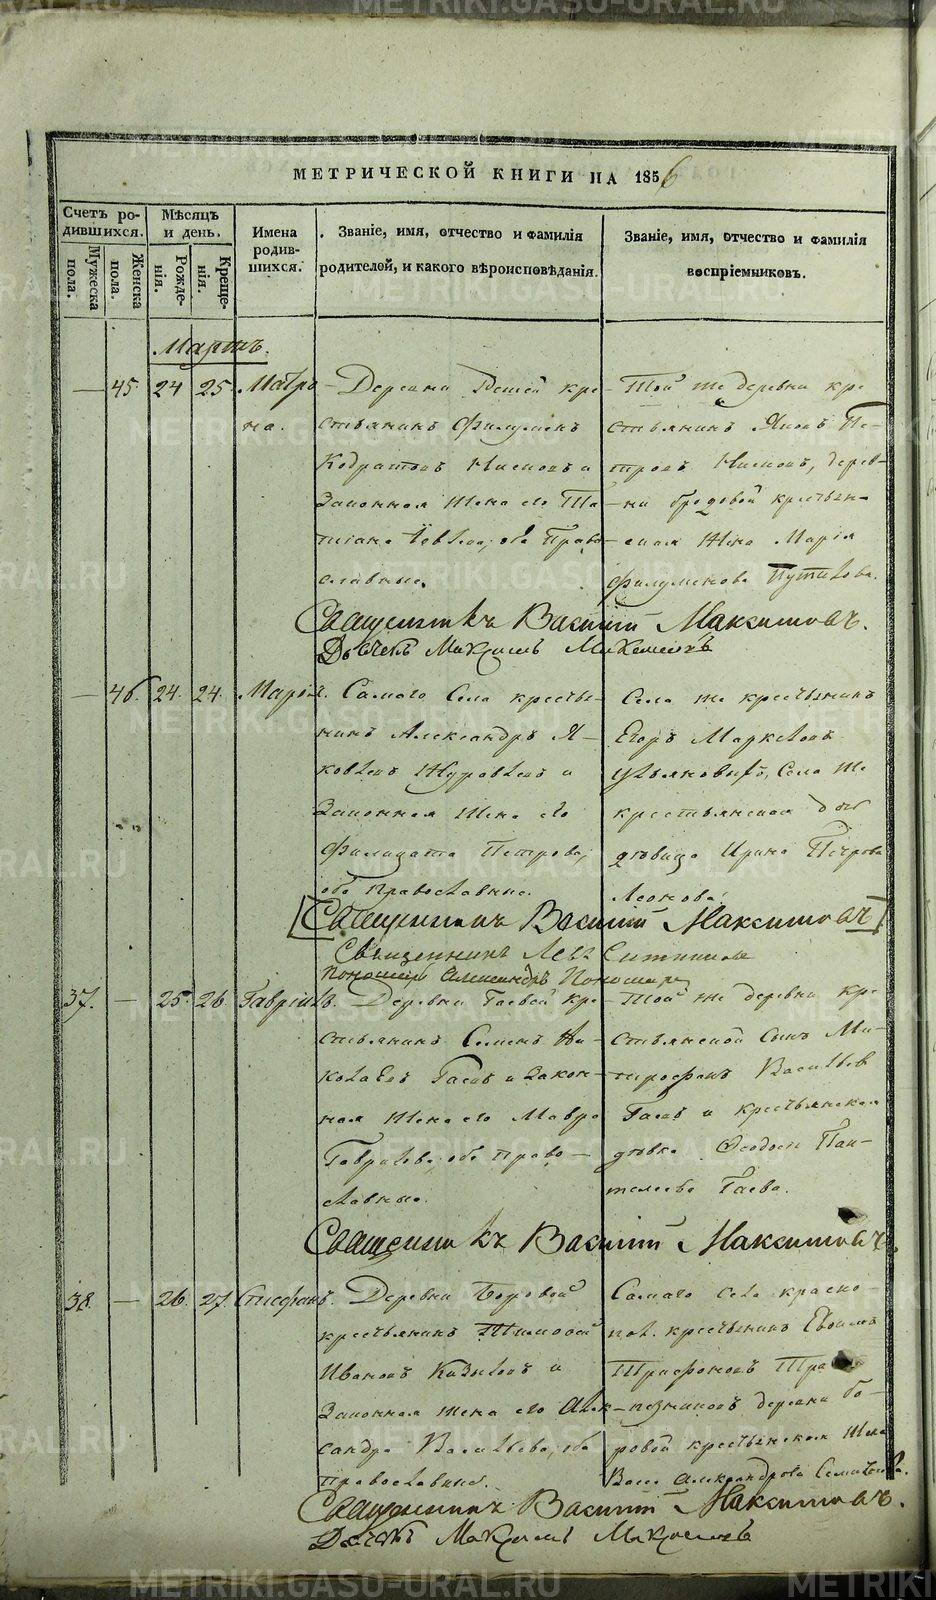 МЕТРИЧЕСКОЙ КНИГИ НА 1856
Счетъ родившихся.
Мужеска пола.
Женска пола.
Мѣсяцъ и день.
Рожденія.
Крещенія.
Имена родившихся.
Званіе, имя, отчество и фамилія
родителей, и какого вѣроисповѣданія.
Званіе, имя, отчество и фамилія
воспріемниковъ.
Мартъ.
— 45. 24 25. Матро-
на.
Деревни кре-
стьянинъ Филуменъ
и
Законная жена его Та-
тіана оба Право-
славные.
Той же деревни кре-
стьянинъ Яковъ Пе-
тровъ дерев-
ни Бродовой крестьян-
ская жена Марія
Филуменова Путилова.
Священникъ Василій Максимовъ.
Дьячекъ Максимъ
— 46. 24. 24. Марія.
Самаго Села крестья-
нинъ Александръ Я-
ковлевъ Журовлевъ и
Законная жена его
Филицата Петрова,
оба православные.
Села же крестьянинъ
Егоръ Маркеловъ
Ульяновыхъ, Села же
крестьянская дочь
дѣвица Ирина Петрова
Леонова.
Священникъ Василій Максимовъ
Священникъ Левъ Ситниковъ
Пономарь Александръ Пономаревъ
37. — 25. 26. Гавріилъ.
Деревни Гаевой кре-
стьянинъ Семенъ Ни-
колаевъ Гаевъ и Закон-
ная жена его Мавра
Гаврилова, оба право-
славные.
Той же деревни кре-
стьянской сынъ Ми-
трофанъ Васильевъ
Гаевъ и крестьянская
дѣвка Ѳеодосья Пан-
телеева Гаева.
Священникъ Василій Максимовъ.
38. — 26. 27. Стефанъ.
Деревни Боровой
крестьянинъ Тимоѳей
Ивановъ и
Законная жена его Алек-
сандра Васильева, оба
православные.
Самаго села красно-
пол. крестьянинъ Евѳимъ
Трифоновъ
деревни Бо-
ровой крестьянская жена
Васса Александрова
Священникъ Василій Максимовъ.
Дьячекъ Максимъ
METRIKI.GASO-URAL.RU